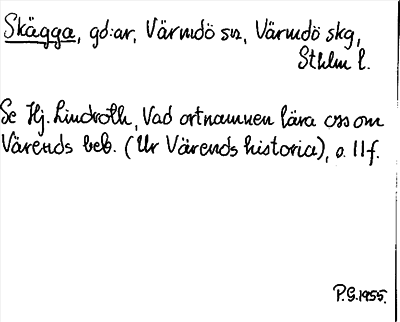 Skägga, gd:ar, Värmdö sn, Värmdö skg,
Sthlm l.
Se Hj. Lindroth, Vad ortnamnen lära oss om
Värends beb. (Ur Värends historia), s. 11 f.
P.G. 1955.